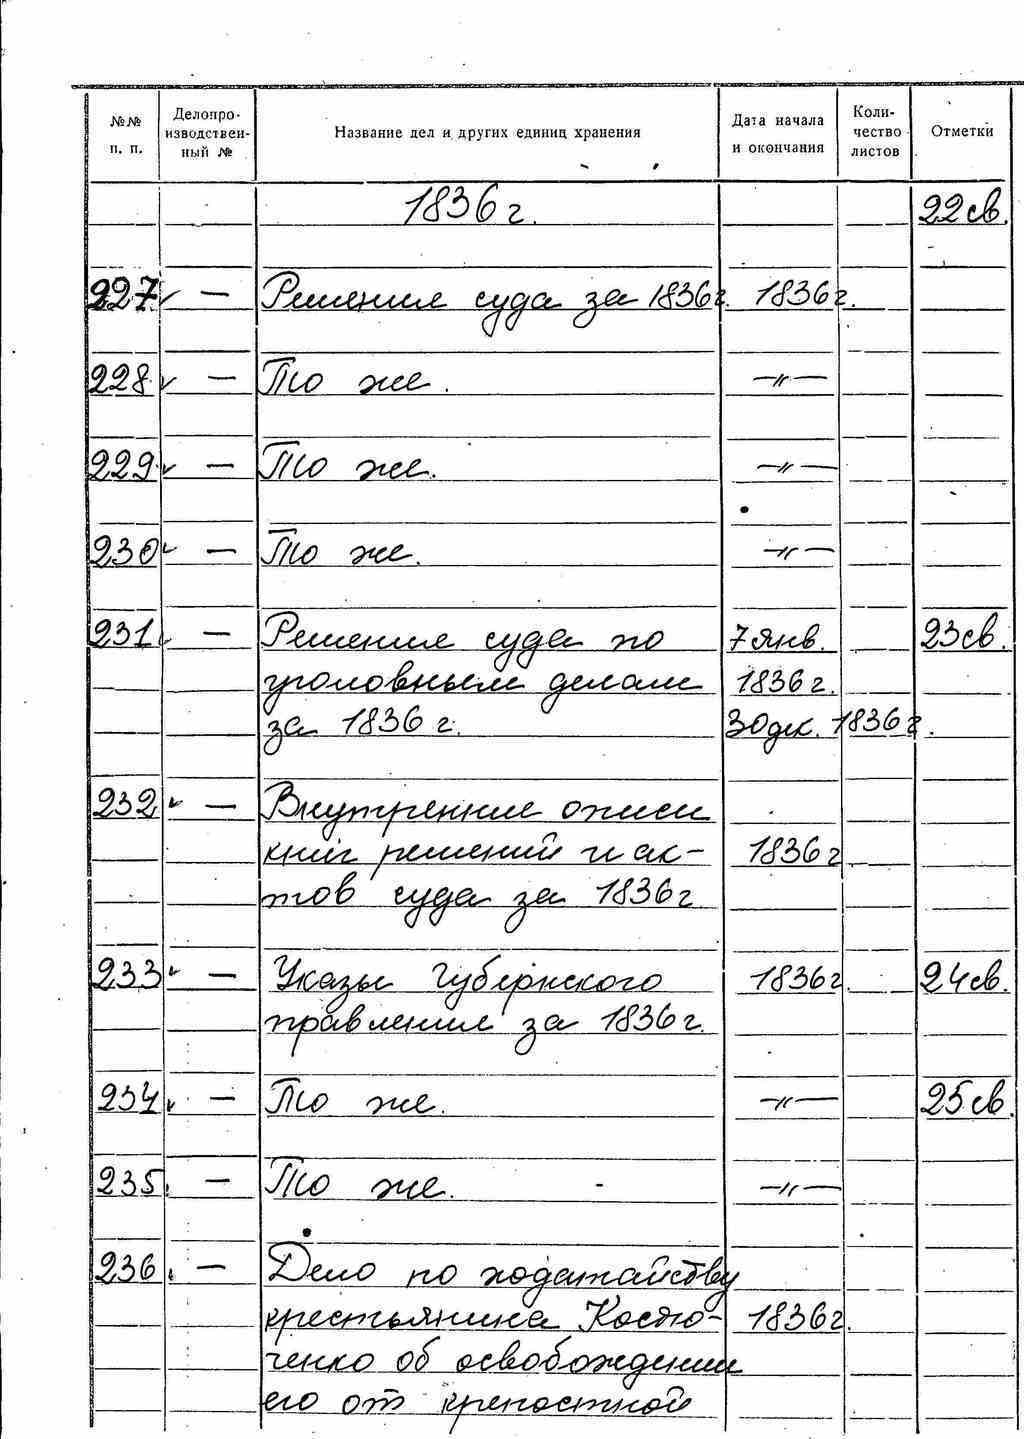 №№ п. п. | Делопроизводственный № | Название дел и других единиц хранения | Дата начала и окончания | Количество листов | Отметки
1836 г. 22 св.
227 ✓ — Решения суда за 1836 г. 1836 г.
228 ✓ — То же. —〃—
229 ✓ — То же. —〃—
230 ✓ — То же. —〃—
231 ✓ — Решения суда по 7 янв. 23 св.
уголовным делам 1836 г.
за 1836 г. 30 дек. 1836 г.
232 ✓ — Внутренние описи
книг решений и ак- 1836 г.
тов суда за 1836 г.
233 ✓ — Указы Губернского 1836 г. 24 св.
правления за 1836 г.
234 ✓ — То же. —〃— 25 св.
235 — То же. —〃—
236 — Дело по ходатайству
крестьянина Костю- 1836 г.
ченко об освобождении
его от крепостной